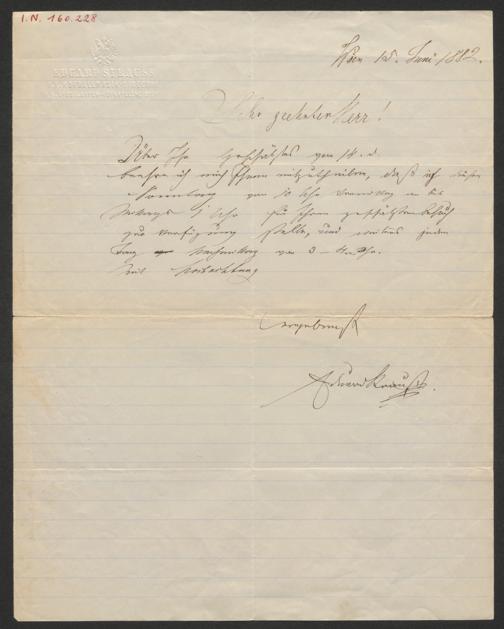 I.N. 160.228
EDUARD STRAUSS
Wien 15. Juni 1882.
Sehr geehrter Herr!
Über Ihr Geschätztes vom 14. d.
beehre ich mich Ihnen mitzutheilen, daß ich diesen
Sonntag von 10 Uhr Vormittag an bis
1 Uhr für Ihren geschätzten Besuch
zur Verfügung stelle, und weiters jeden
Tag Nachmittag von 3 – 4 Uhr.
Mit Hochachtung
ergebenst
Eduard Strauß.